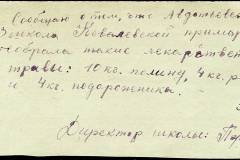 Сообщаю о том, что Авдотьевск
школа Коваловской примар
собрала такие лекарствен
травы: 10 кг. полину, 4 кг. р
и 4 кг. подорожника.
Директор школы: